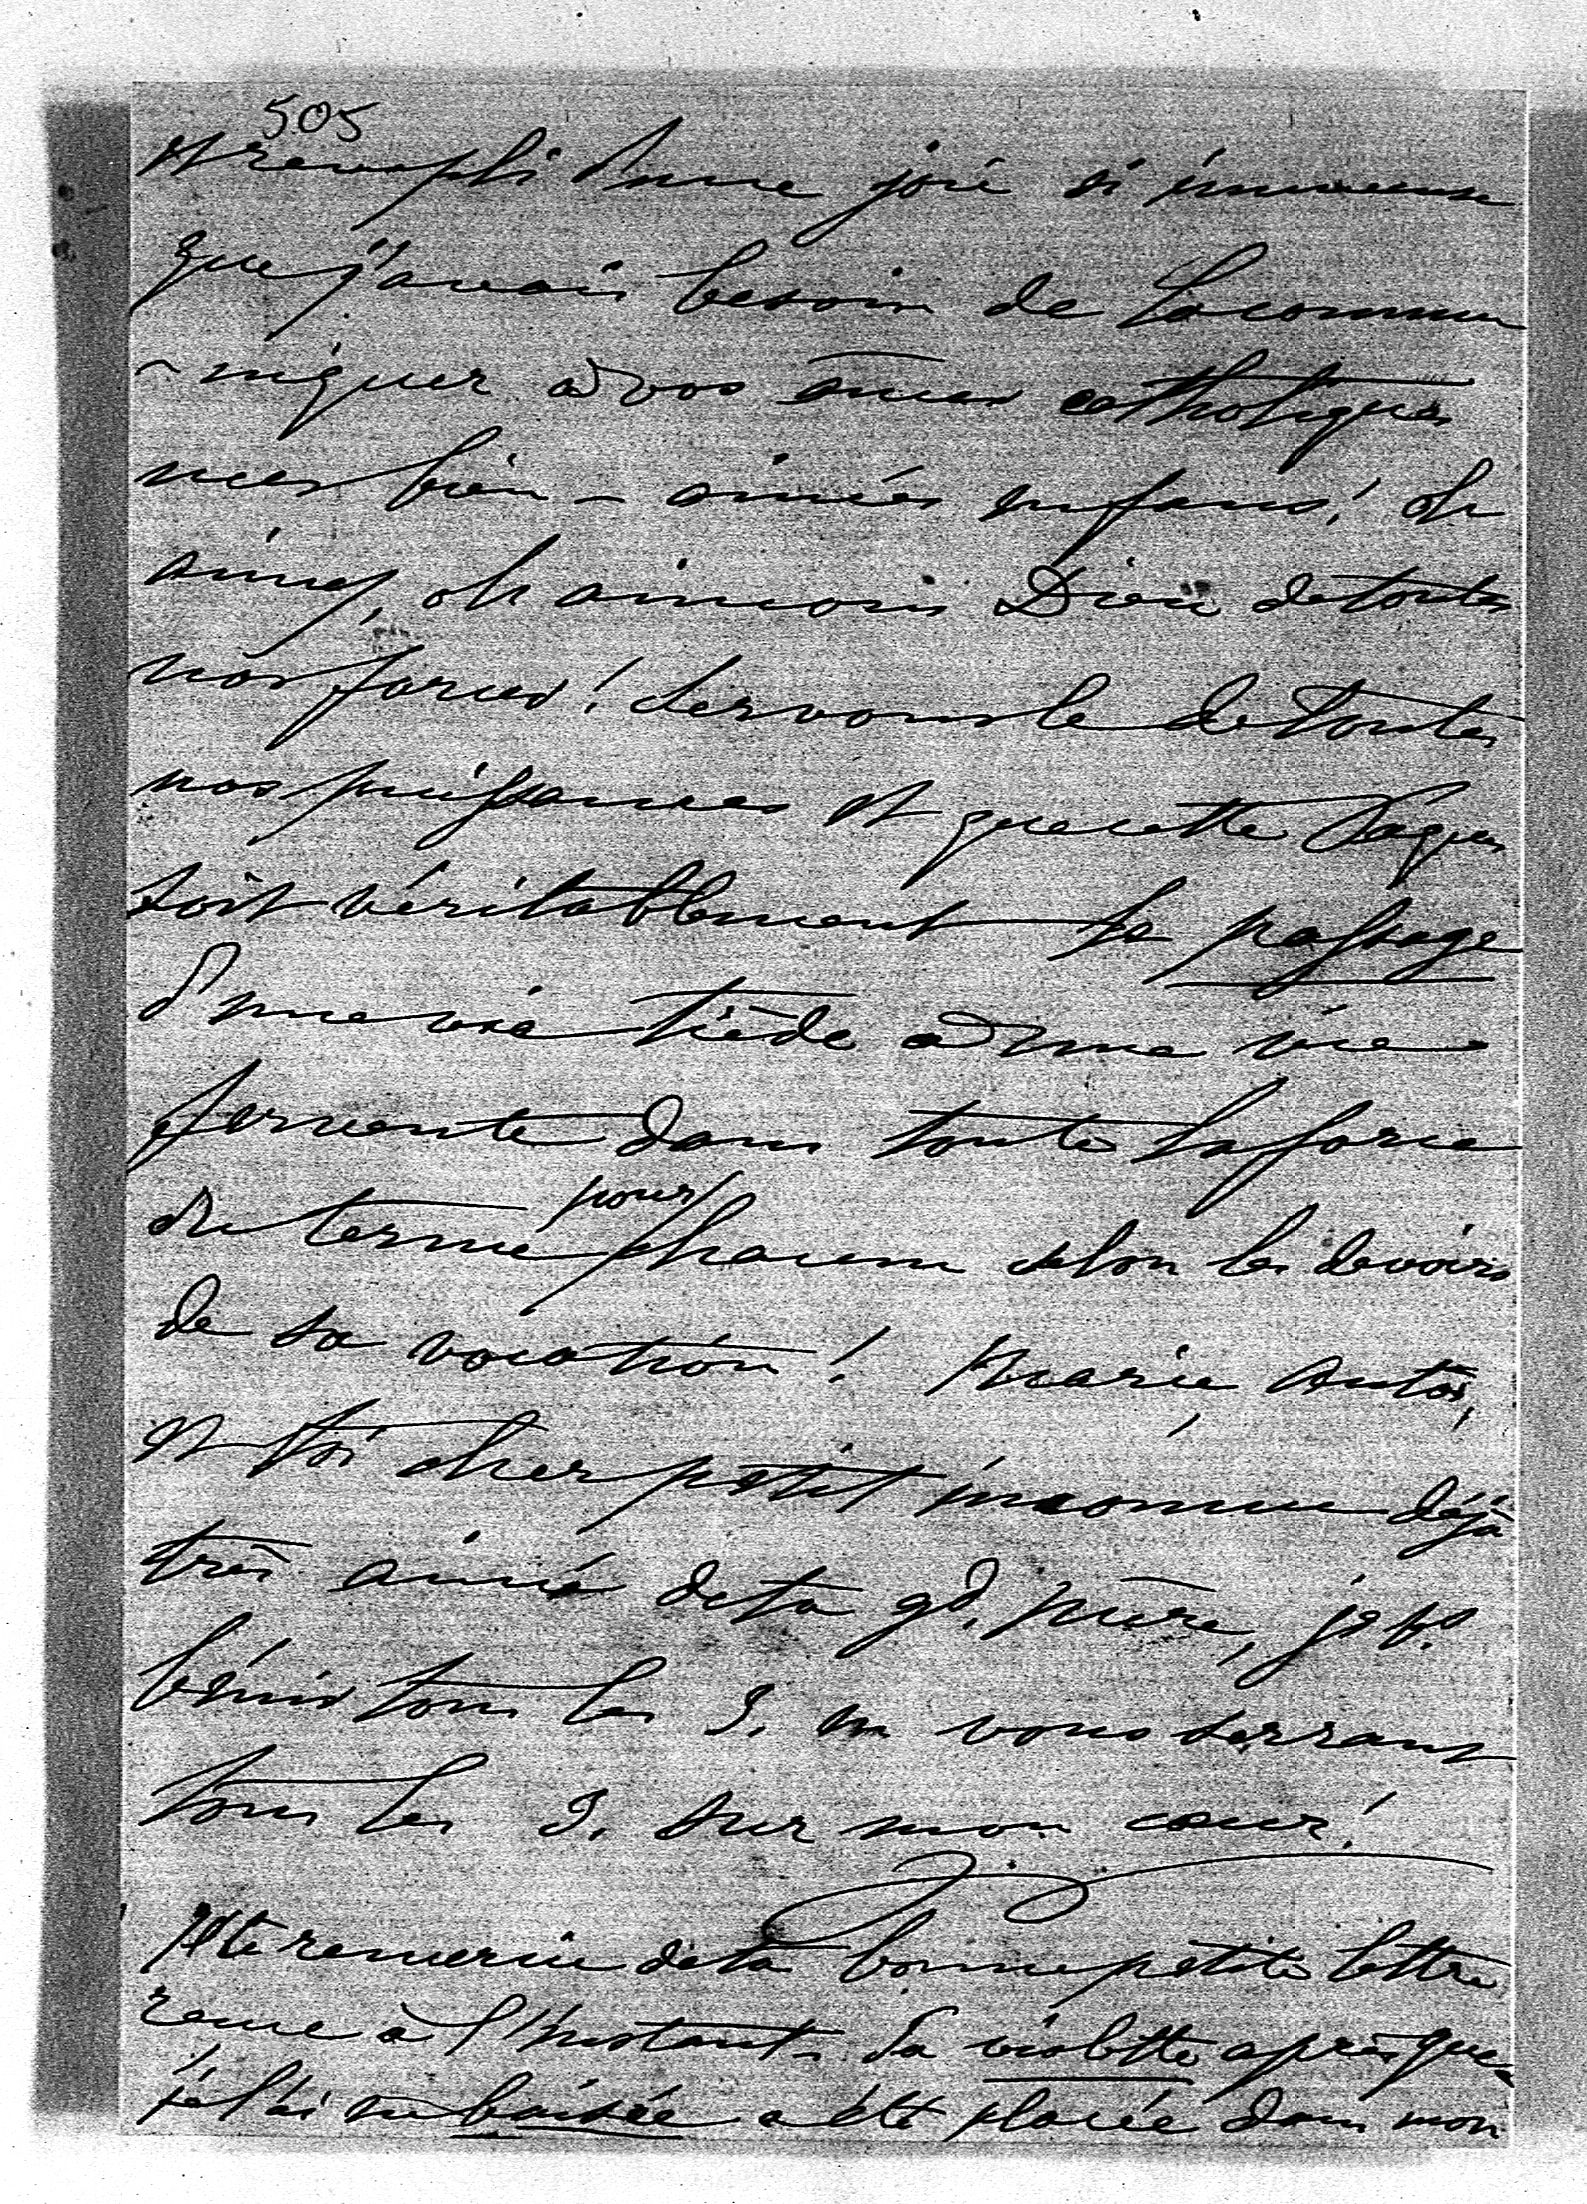 505
et rempli d'une joie si immense
que j'avais besoin de la commu
- niquer à vos âmes catholiques
mes bien-aimés enfans! oh
aimez, oh aimons Dieu de toutes
nos forces! Servons le de toutes
nos puissances et que cette Pâques
soit véritablement le passage
d'une vie tiède à une vie
fervente dans toute la force
du terme pour chacun selon les devoirs
de sa vocation! Marie, Antoi,
et toi cher petit inconnu déjà
très aimé de ta gd. mère, je vs.
bénis tous les 3. en vous serrant
tous les 3. sur mon cœur!
Je te remercie de ta bonne petite lettre
reçue à l'instant. La violette après que
je l'ai eu baisée a été placée dans mon